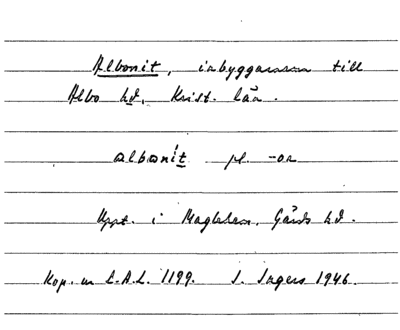 Albonit, inbyggarna till
Albo hd, Krist. län.
albonít pl. -or
Uppt. i Maglehem. Gärds hd.
Kop. ur L.A.L. 1199. I. Ingers 1946.